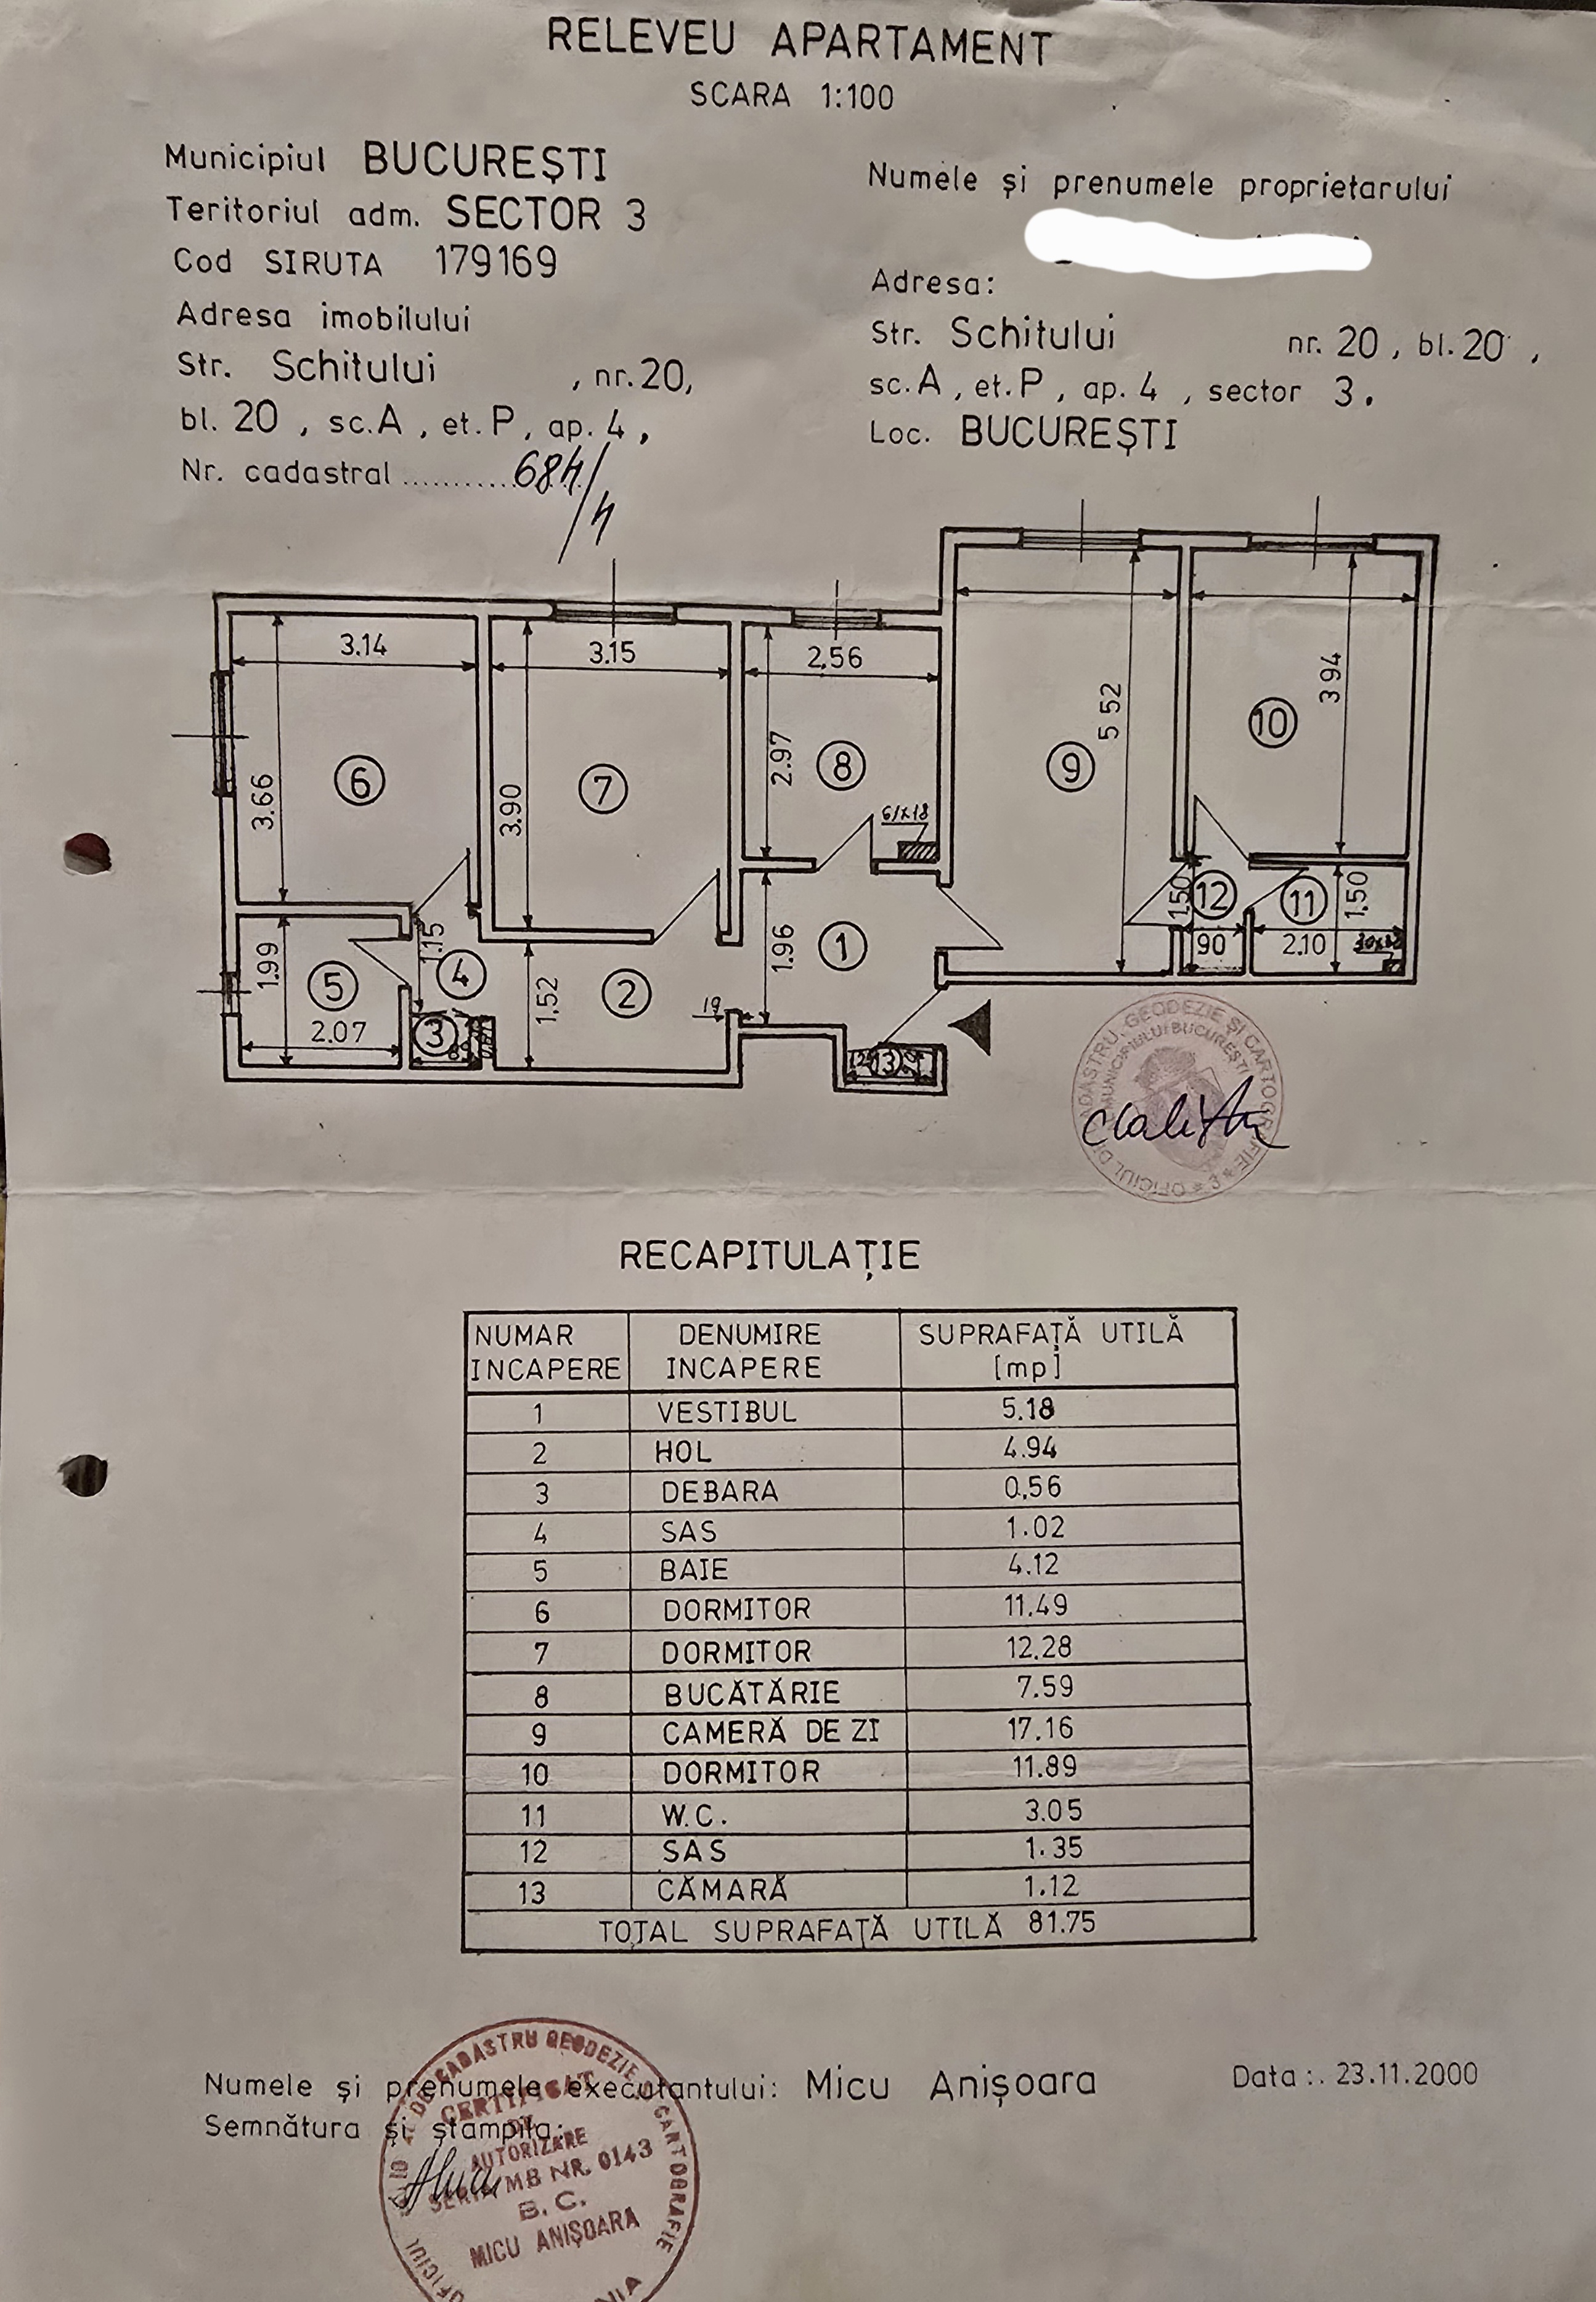 RELEVEU APARTAMENT
SCARA 1:100
Municipiul BUCUREȘTI
Teritoriul adm. SECTOR 3
Cod SIRUTA 179169
Adresa imobilului
Str. Schitului , nr. 20,
bl. 20 , sc. A , et. P , ap. 4 ,
Nr. cadastral ........... 684/4
Numele și prenumele proprietarului
Adresa:
Str. Schitului nr. 20 , bl. 20 ,
sc. A , et. P , ap. 4 , sector 3 .
Loc. BUCUREȘTI
3.14
3.15
2.56
3.66
3.90
2.97
5 52
3 94
6
7
8
9
10
61x18
1.99
1.15
1.52
1.96
1.50
1.50
5
4
2
1
12
11
2.07
3
19
90
2.10
13
OFICIUL DE CADASTRU, GEODEZIE ȘI CARTOGRAFIE
MUNICIPIULUI BUCUREȘTI
* 3 *
RECAPITULAȚIE
NUMAR INCAPERE DENUMIRE INCAPERE SUPRAFAȚĂ UTILĂ [mp]
1 VESTIBUL 5.18
2 HOL 4.94
3 DEBARA 0.56
4 SAS 1.02
5 BAIE 4.12
6 DORMITOR 11.49
7 DORMITOR 12.28
8 BUCĂTĂRIE 7.59
9 CAMERĂ DE ZI 17.16
10 DORMITOR 11.89
11 W.C. 3.05
12 SAS 1.35
13 CĂMARĂ 1.12
TOTAL SUPRAFAȚĂ UTILĂ 81.75
Numele și prenumele executantului: Micu Anișoara
Data :. 23.11.2000
Semnătura și ștampila:
OFICIUL CADASTRU GEODEZIE CARTOGRAFIE
CERTIFICAT
DE
AUTORIZARE
SERIA MB NR. 0143
B. C.
MICU ANIȘOARA